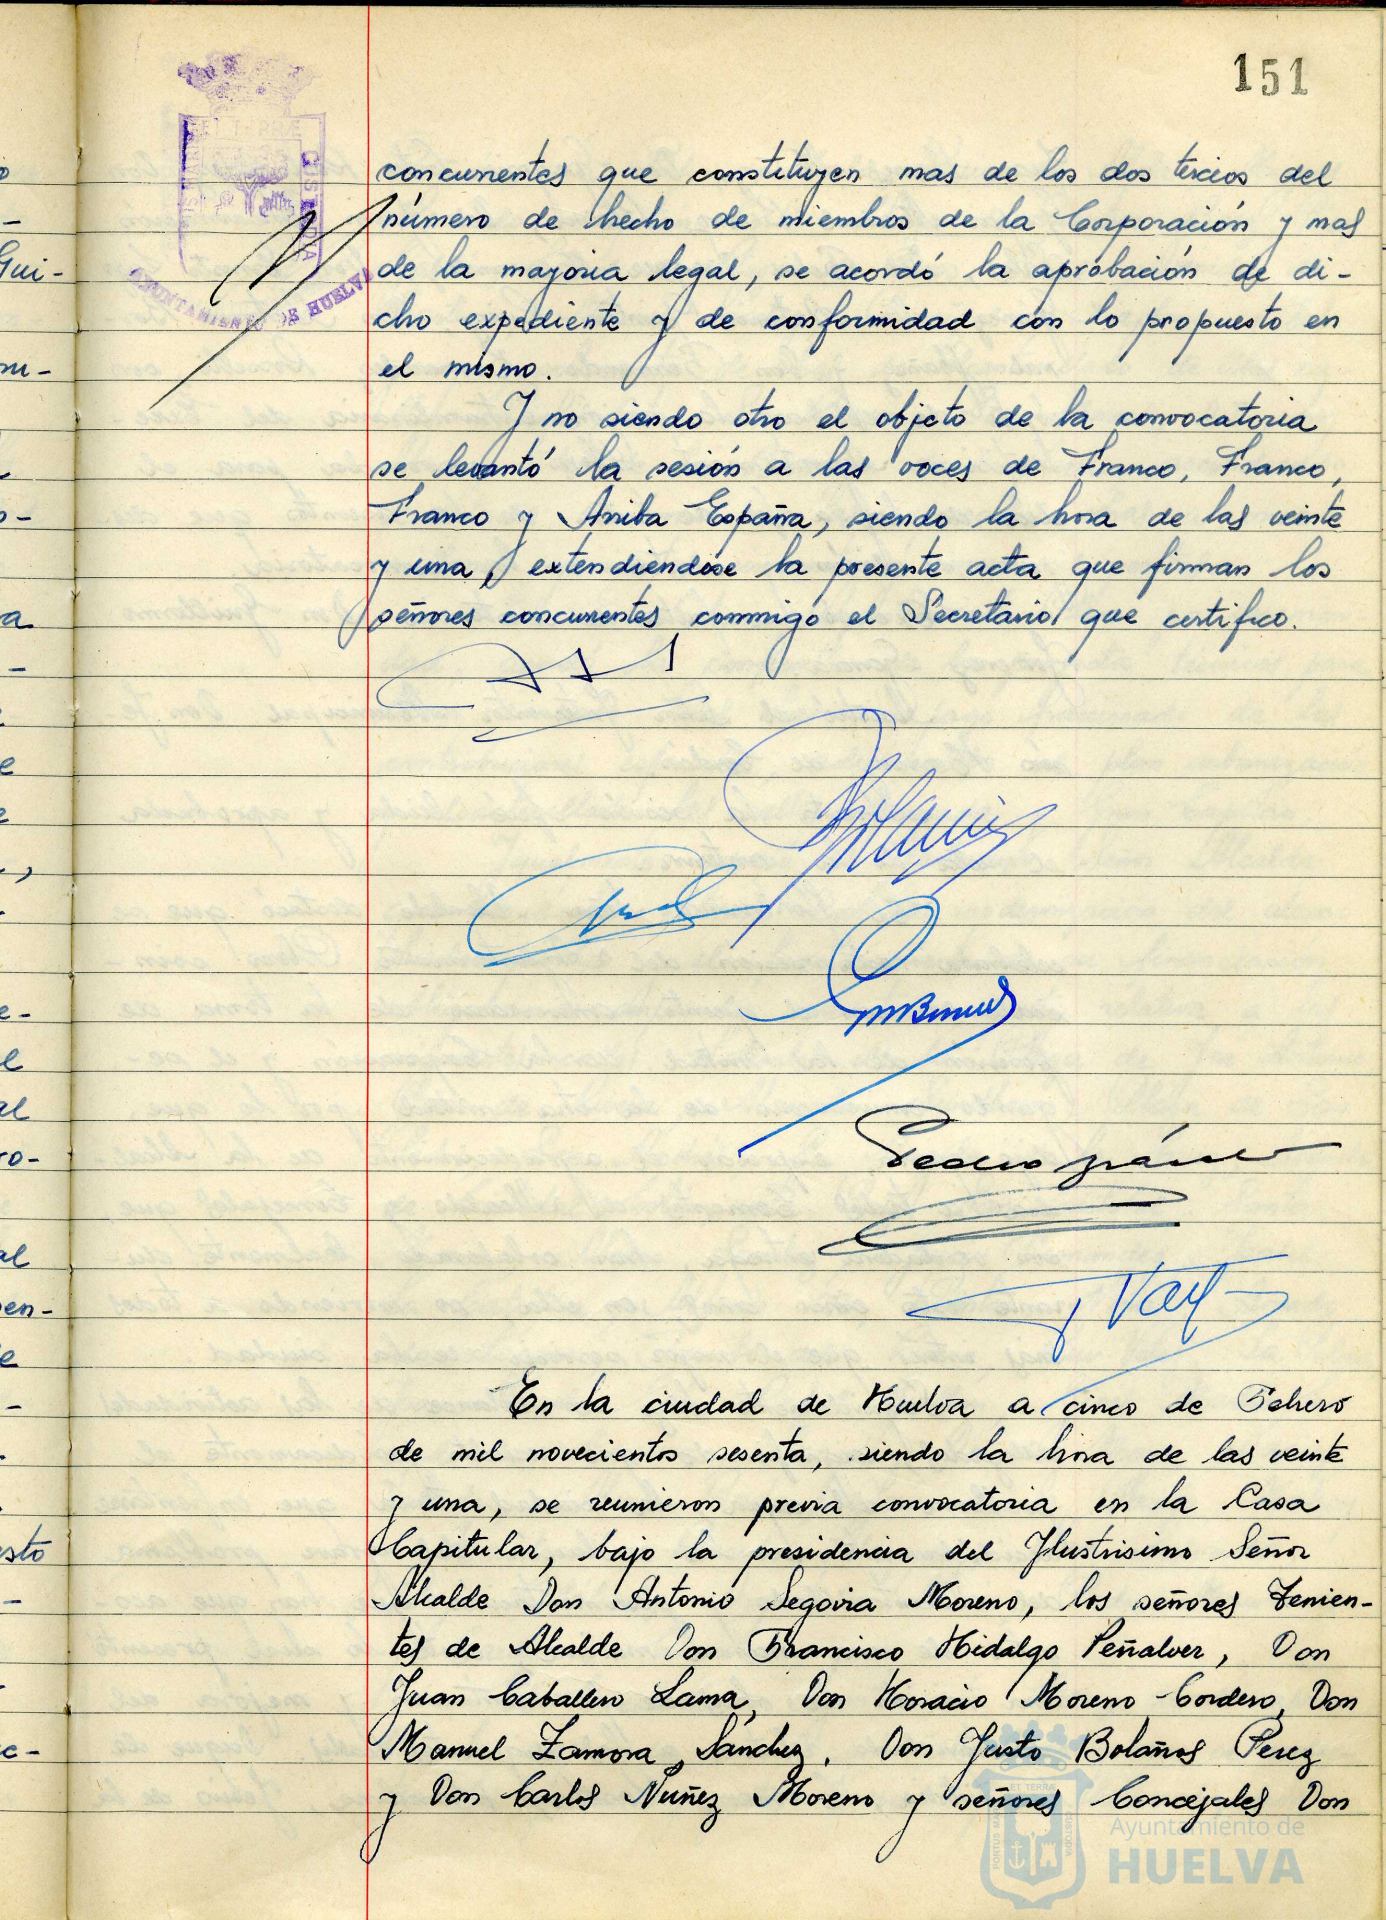 151
concurrentes que constituyen mas de los dos tercios del
número de hecho de miembros de la Corporación y mas
de la mayoria legal, se acordó la aprobación de di-
cho expediente y de conformidad con lo propuesto en
el mismo.
Y no siendo otro el objeto de la convocatoria
se levantó la sesión a las voces de Franco, Franco,
Franco y Arriba España, siendo la hora de las veinte
y una, extendiendose la presente acta que firman los
señores concurrentes conmigo el Secretario que certifico.
En la ciudad de Huelva a cinco de Febrero
de mil novecientos sesenta, siendo la hora de las veinte
y una, se reunieron previa convocatoria en la Casa
Capitular, bajo la presidencia del Ilustrisimo Señor
Alcalde Don Antonio Segovia Moreno, los señores Tenien-
tes de Alcalde Don Francisco Hidalgo Peñalver, Don
Juan Caballero Lama, Don Horacio Moreno-Cordero, Don
Manuel Zamora Sánchez, Don Justo Bolaños Perez
y Don Carlos Nuñez Moreno y señores Concejales Don
AYUNTAMIENTO DE HUELVA
Ayuntamiento de
HUELVA